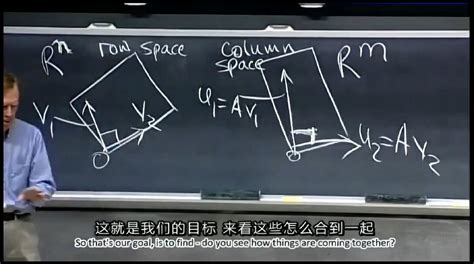 Rⁿ row space
column space Rᵐ
v₁
v₂
u₁=Av₁
u₂=Av₂
这就是我们的目标 来看这些怎么合到一起
So that's our goal, is to find - do you see how things are coming together?